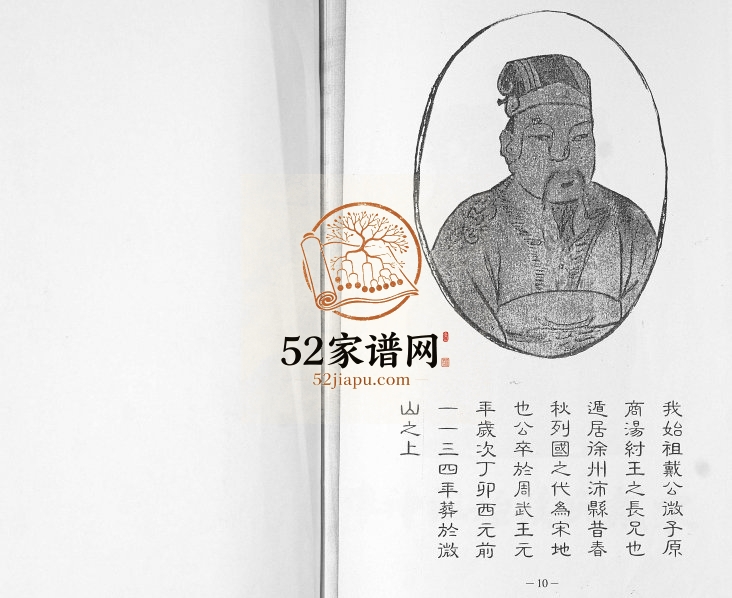 我始祖戴公微子原
商湯紂王之長兄也
遁居徐州沛縣昔春
秋列國之代為宋地
也公卒於周武王元
年歲次丁卯西元前
一一三四年葬於微
山之上
－10－
52家谱网
52jiapu.com